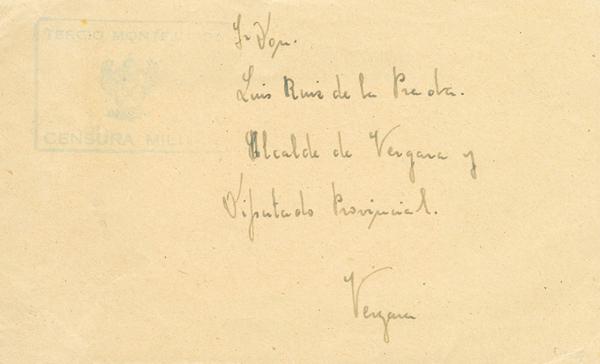 TERCIO MONTE
CENSURA MILI
Sr Don.
Luis Ruiz de la Prada.
Alcalde de Vergara y
Diputado Provincial.
Vergara